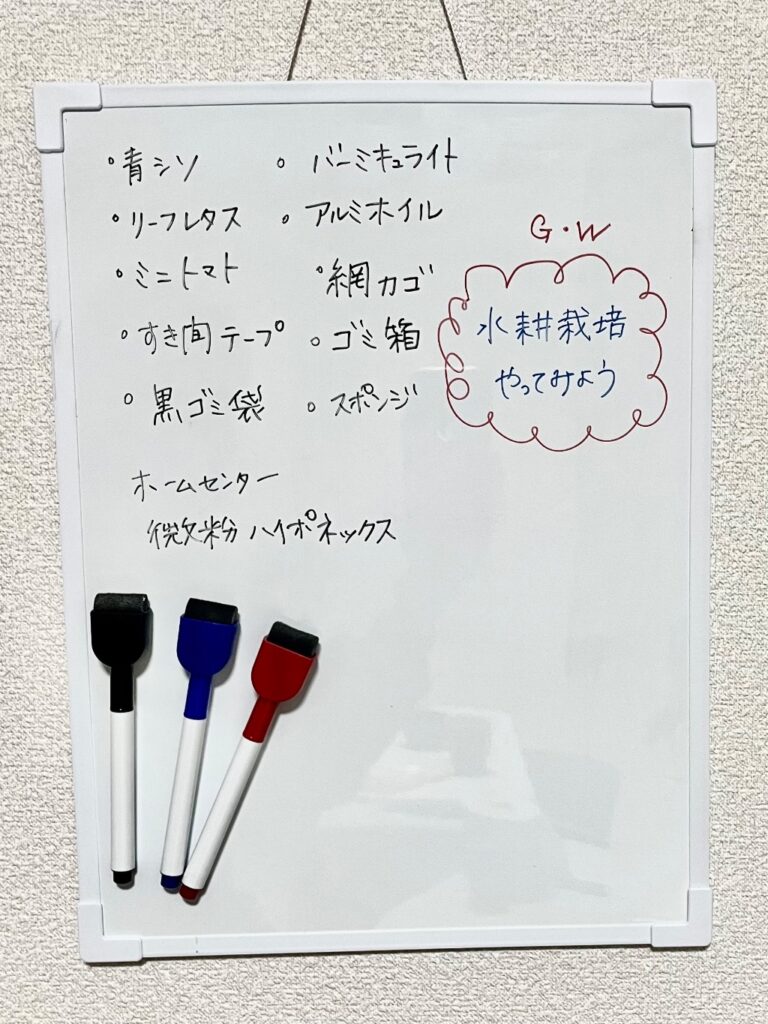 ・青シソ
・リーフレタス
・ミニトマト
・すき間テープ
・黒ゴミ袋
・バーミキュライト
・アルミホイル
・網カゴ
・ゴミ箱
・スポンジ
ホームセンター
微粉ハイポネックス
G・W
水耕栽培
やってみよう